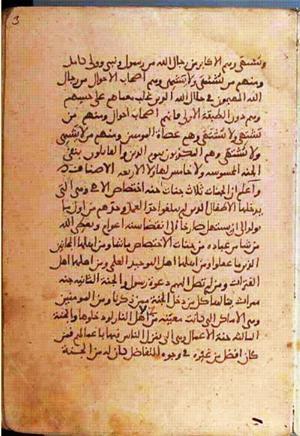 3
وتشتهي وهم الاكابر من رجال الله من رسول ونبي وولي كامل
ومنهم من تشتهى ولا تشتهي وهم اصحاب الاحوال من رجال
الله المهيمون في جلال الله الذين غلب معناهم على حسهم
وهم دون الطبقة الاولى فانهم اصحاب احوال ومنهم من
تشتهي ولا تشتهى وهم عصاة المومنين ومنهم من لا يشتهي
ولا تشتهى وهم المكذبون بيوم الدين والقايلون بنفي
الجنة المحسوسه ولا خامس لهاولا الاربعه الاصناف
واعلم ان الجنات ثلاث جنات جنه اختصاص الاهي وهي التي
يدخلها الاطفال الذين لم يبلغوا حد العمل وحدهم من اول ما
يولد الى ان يستهل صارخا الى انقضا سته اعوام ويعطي الله
من شا من عباده من جنات الاختصاص ما شا ومن اهلها المجانين
الذين ما عقلوا ومن اهلها اهل التوحيد العلمي ومن اهلها اهل
الفترات ومن لم تصل اليهم دعوة رسول والجنة الثانيه جنه
ميراث ينالها كل من دخل الجنة ممن ذكرنا ومن المومنين
وهي الاماكن التي كانت معينه لاهل النار لو دخلوها والجنة
الثالثه جنة الاعمال وهي التي ينزل الناس فيها باعمالهم فمن
كان افضل من غيره في وجوه التفاضل كان له من الجنة